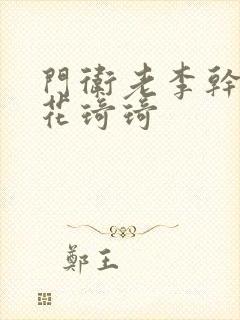 門衛老李幹
花琦琦
鄭王